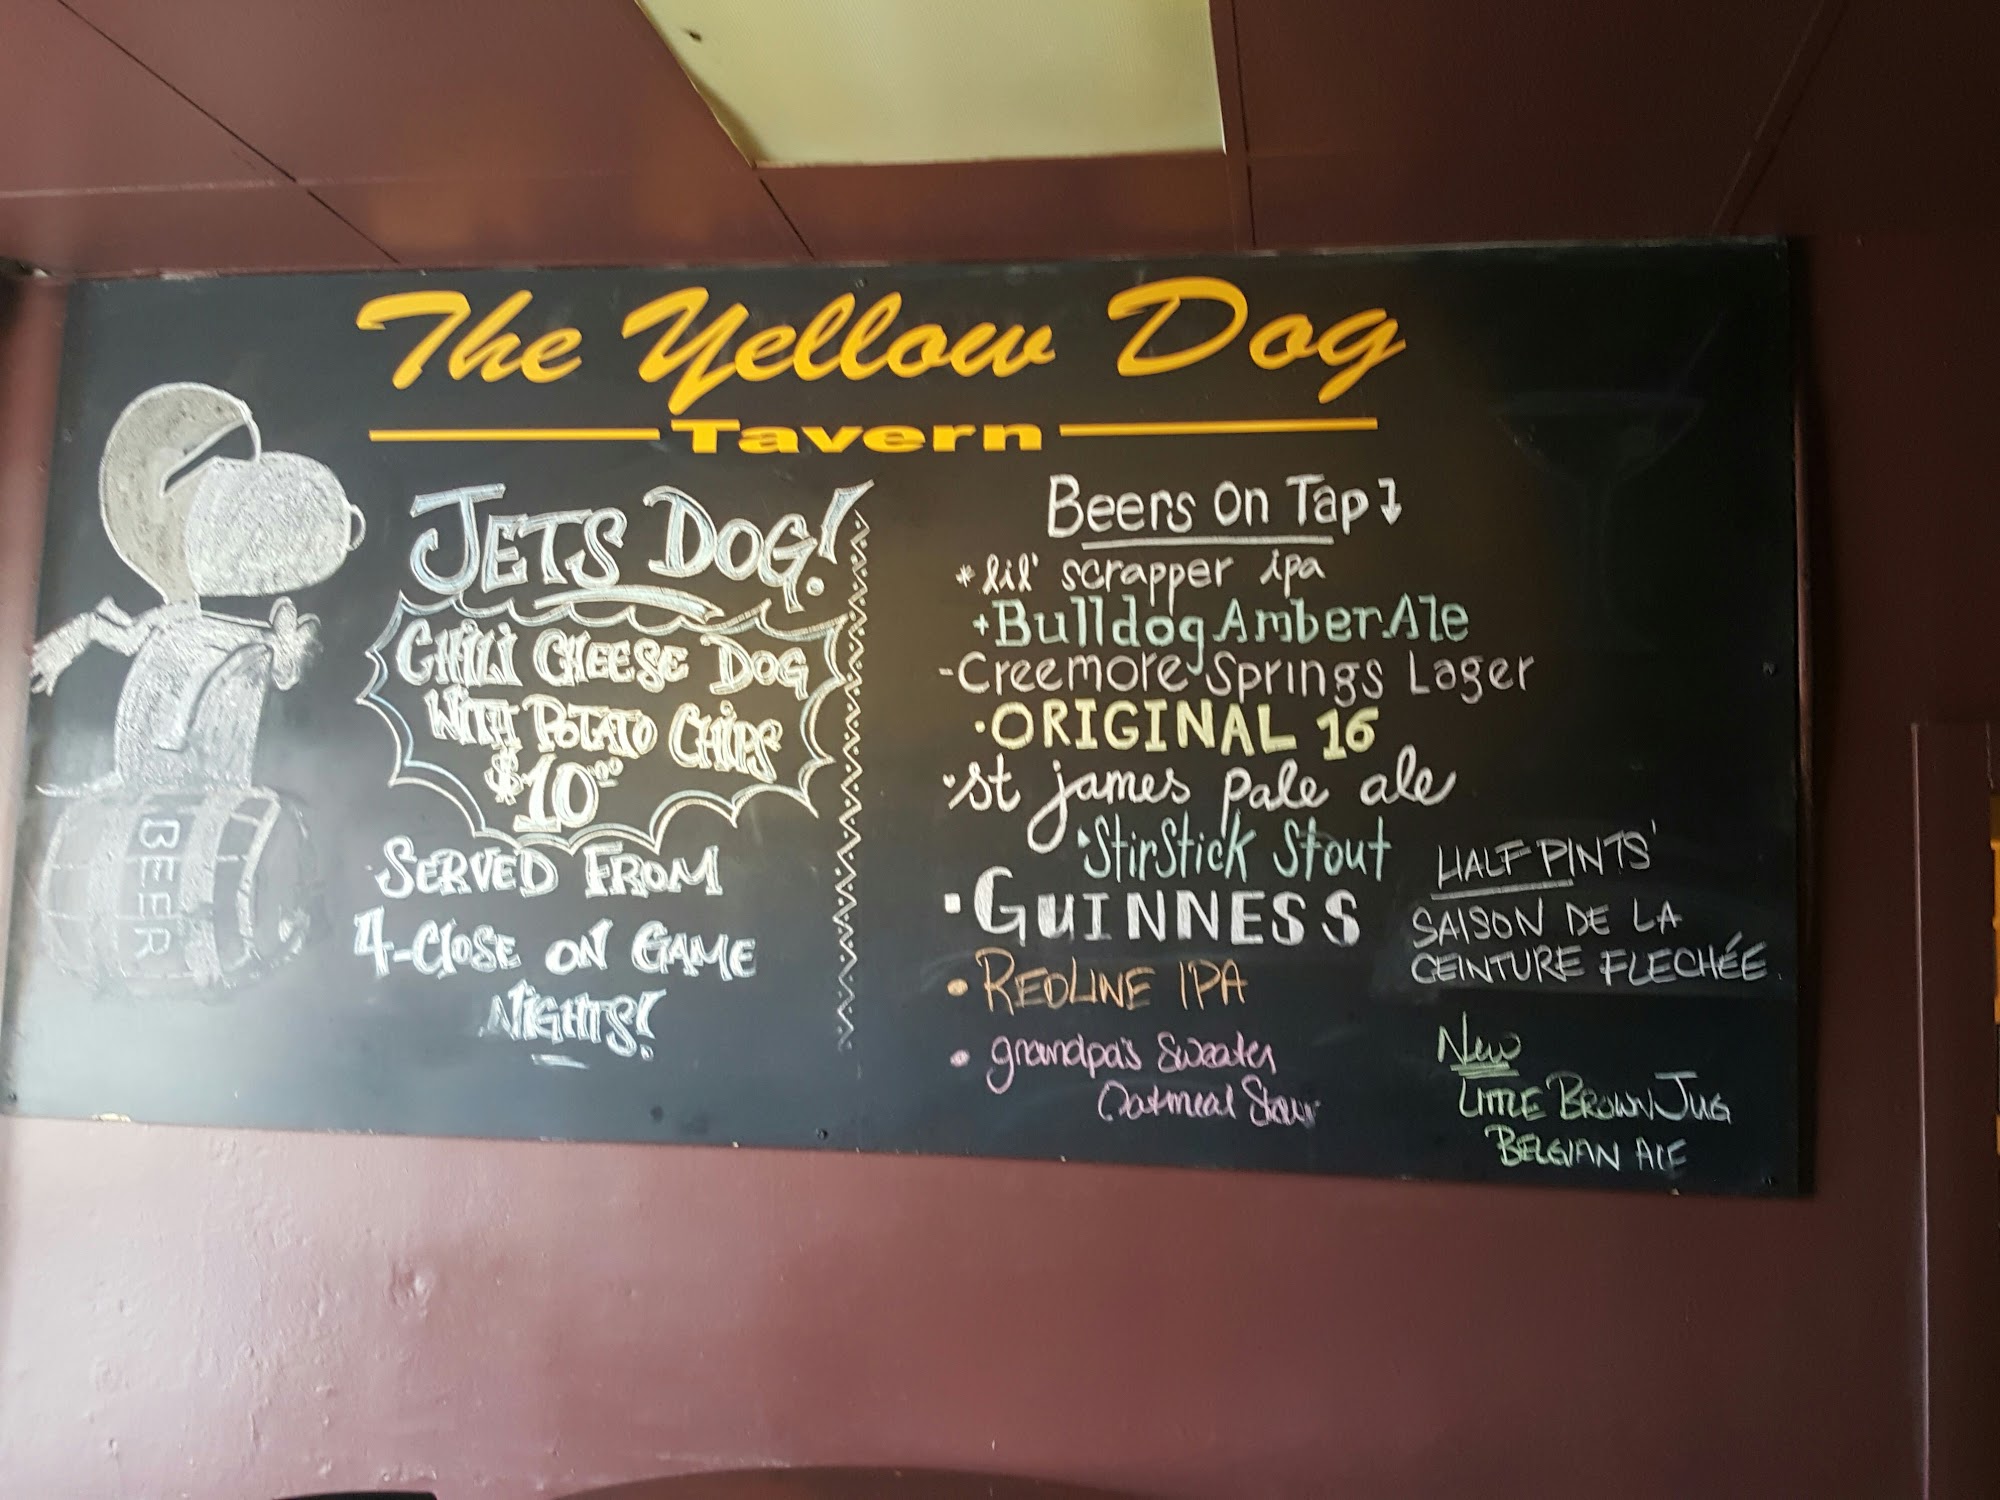 The Yellow Dog
Tavern
JETS DOG!
CHILI CHEESE DOG
WITH POTATO CHIPS
$10.00
SERVED FROM
4-CLOSE ON GAME
NIGHTS!
BEER
Beers On Tap
* lil' scrapper ipa
+ Bulldog Amber Ale
- Creemore Springs Lager
• ORIGINAL 16
• st james pale ale
• StirStick Stout
• GUINNESS
• REDLINE IPA
• grandpa's Sweater
Oatmeal Stout
HALF PINTS'
SAISON DE LA
CEINTURE FLECHÉE
New
LITTLE BROWN JUG
BELGIAN ALE